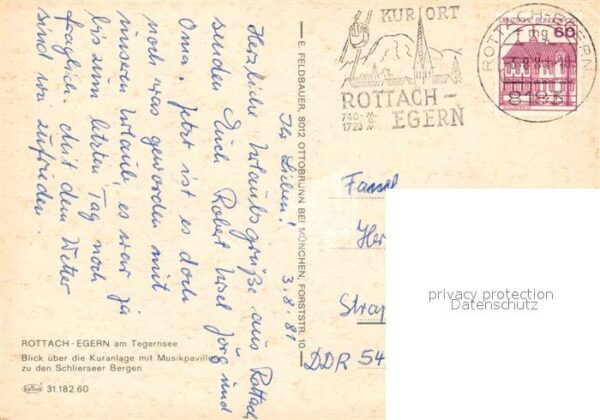 Ihr Lieben! 3.8.81
Herzliche Urlaubsgrüße aus Rottach
senden Euch Robert Insel Jörg und
Oma. Jetzt ist es doch
noch was geworden mit
unserem Urlaub, es war ja
bis zum letzten Tag noch
fraglich. Mit dem Wetter
sind wir zufrieden.
ROTTACH-EGERN am Tegernsee
Blick über die Kuranlage mit Musikpavillon
zu den Schlierseer Bergen
31.182.60
E. FELDBAUER, 8012 OTTOBRUNN BEI MÜNCHEN, FORSTSTR. 10
KURORT
ROTTACH-
EGERN
740-
1723 M
ROTTACH-EGERN
8183
DEUTSCHE BUNDESPOST
60
Her
Stra
DDR 54
privacy protection
Datenschutz